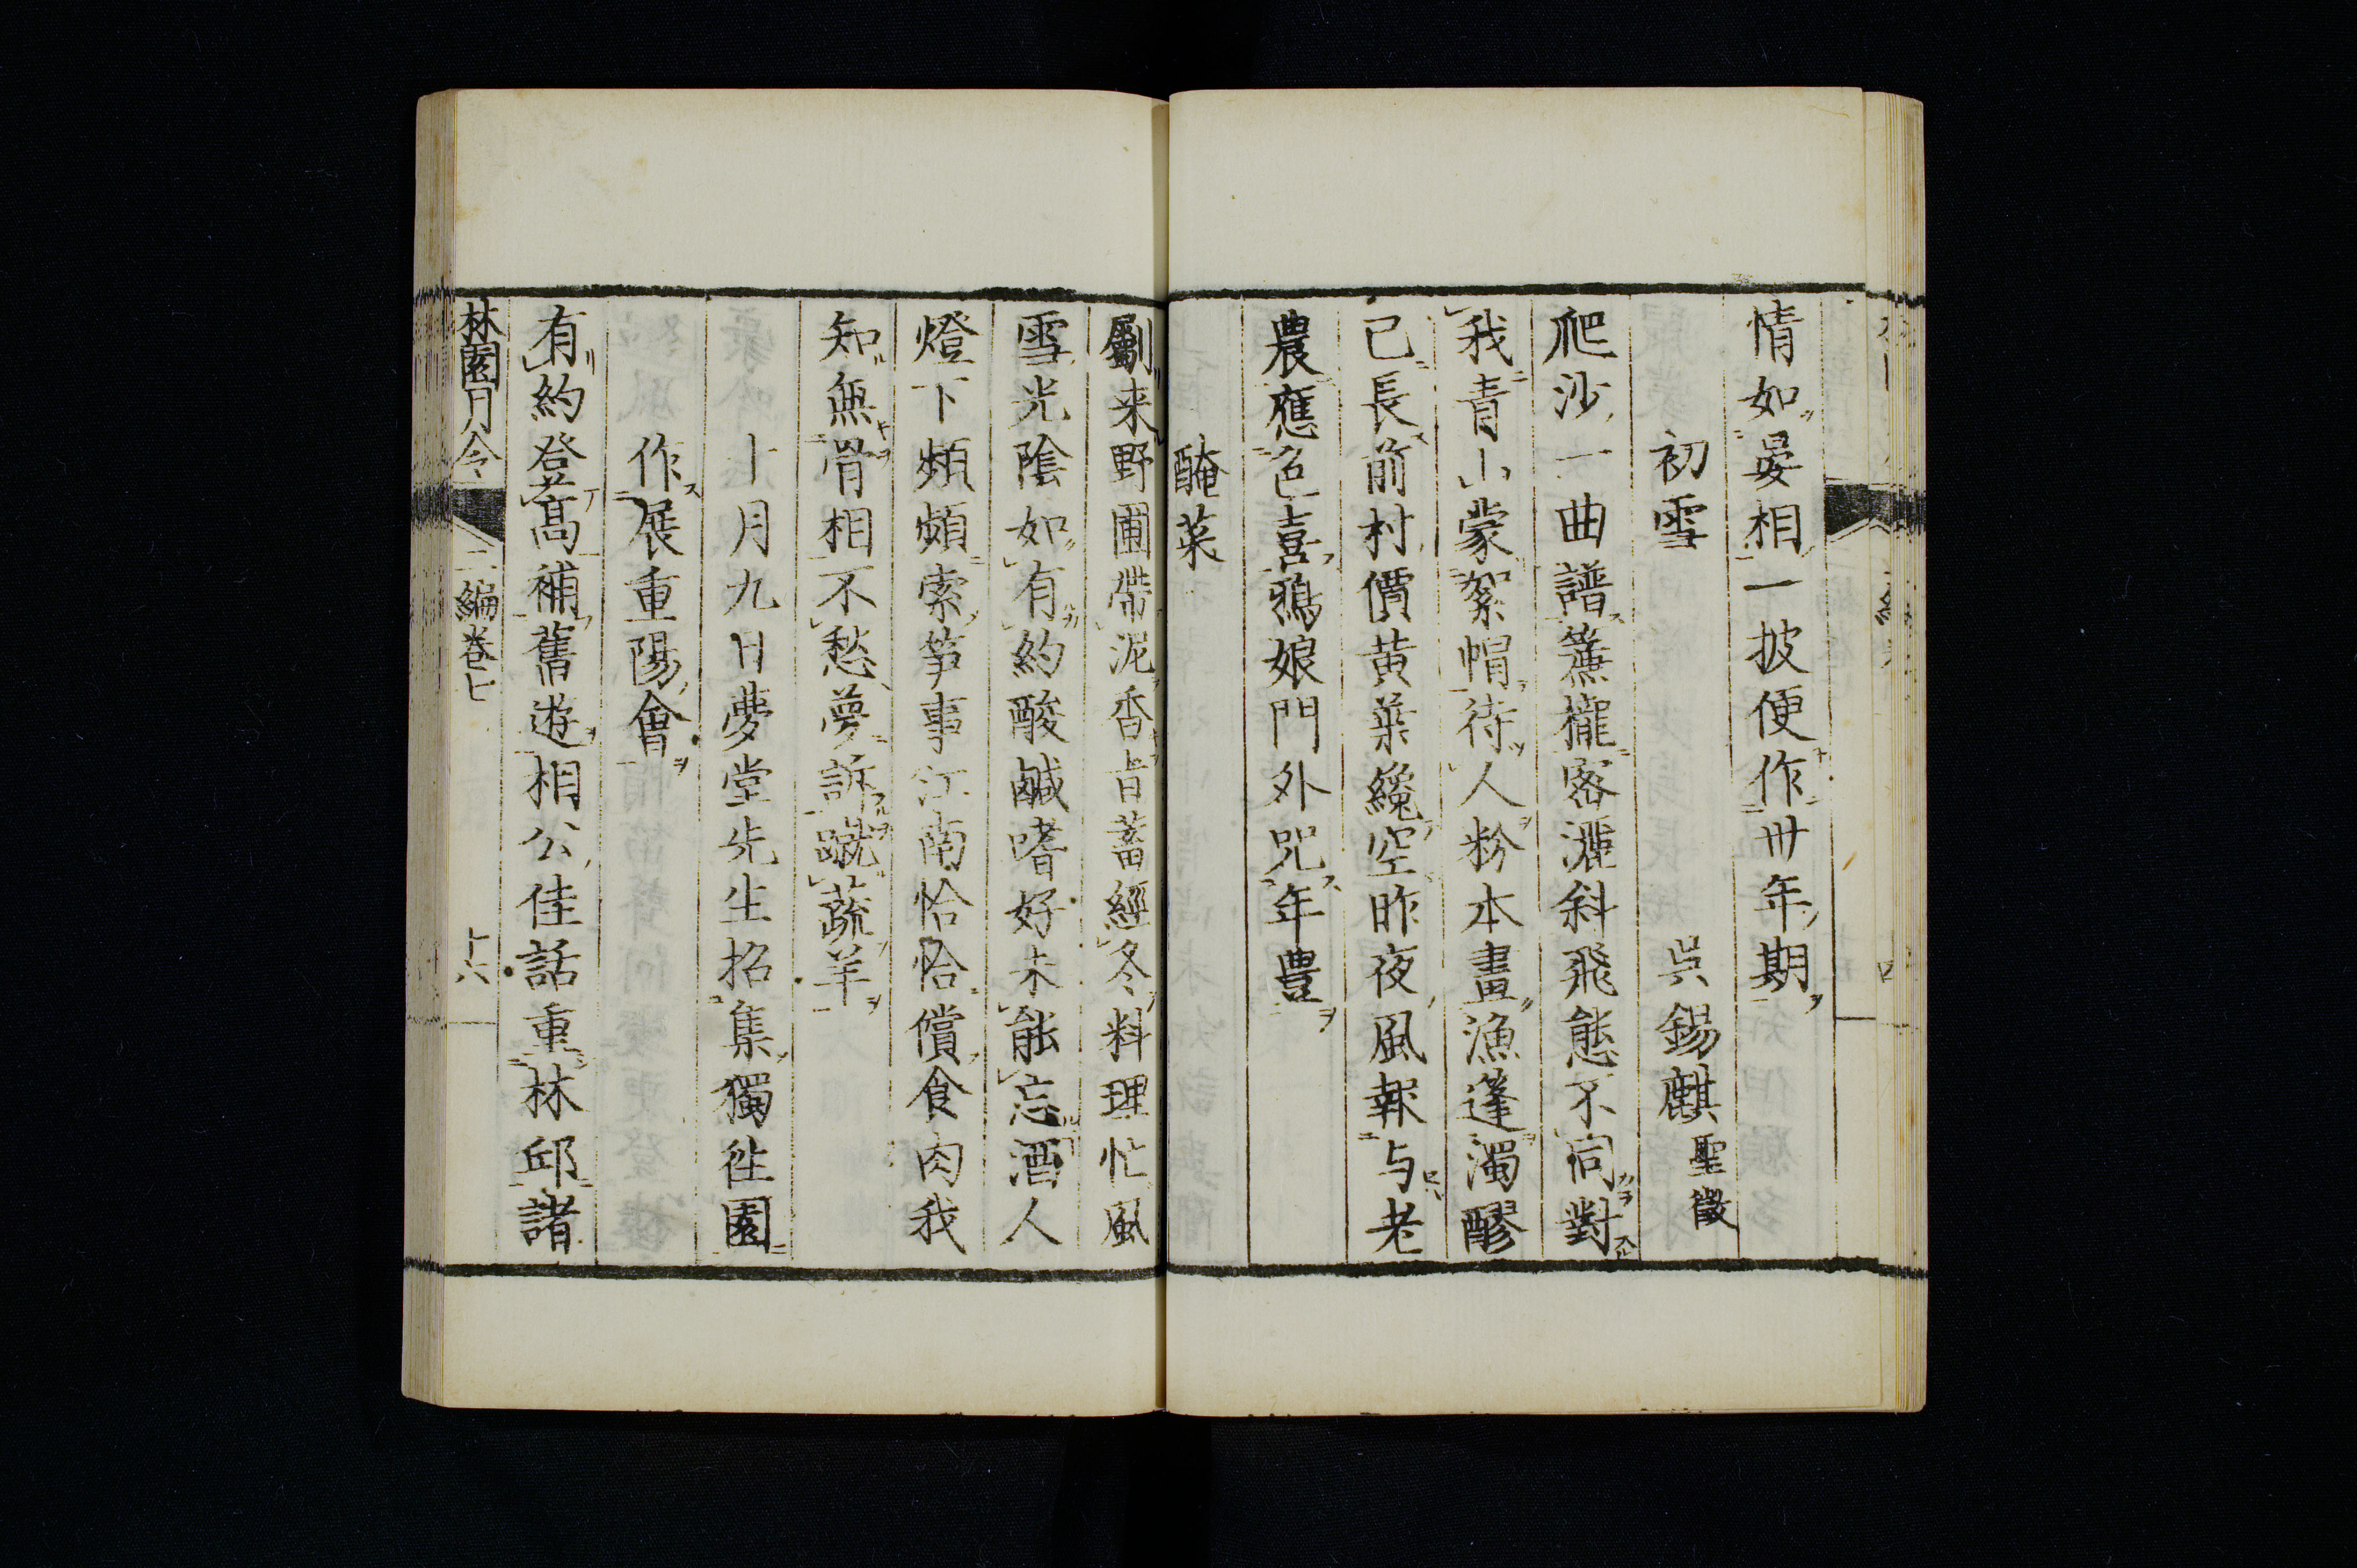 情如晏相一披便作卅年期
初雪
呉錫麒聖徴
爬沙一曲譜簾櫳密灑斜飛態不同對
我青山蒙絮帽待人粉本畫漁蓬濁醪
已長前村價黄葉纔空昨夜風報与老
農應色喜鴉娘門外咒年豊
醃菜
劚来野圃帶泥香旨蓄經冬料理忙風
雪光陰如有約酸鹹嗜好未能忘酒人
燈下頻頻索筝事江南恰恰償食肉我
知無骨相不愁夢訴蹴蔬羊
十月九日夢堂先生招集獨徃園
作展重陽會
有約登髙補舊遊相公佳話重林邱諸
林園月令
二編巻七
十六